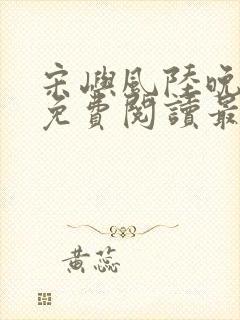 宋嶼風陸晚
免費閱讀最
黃蕊